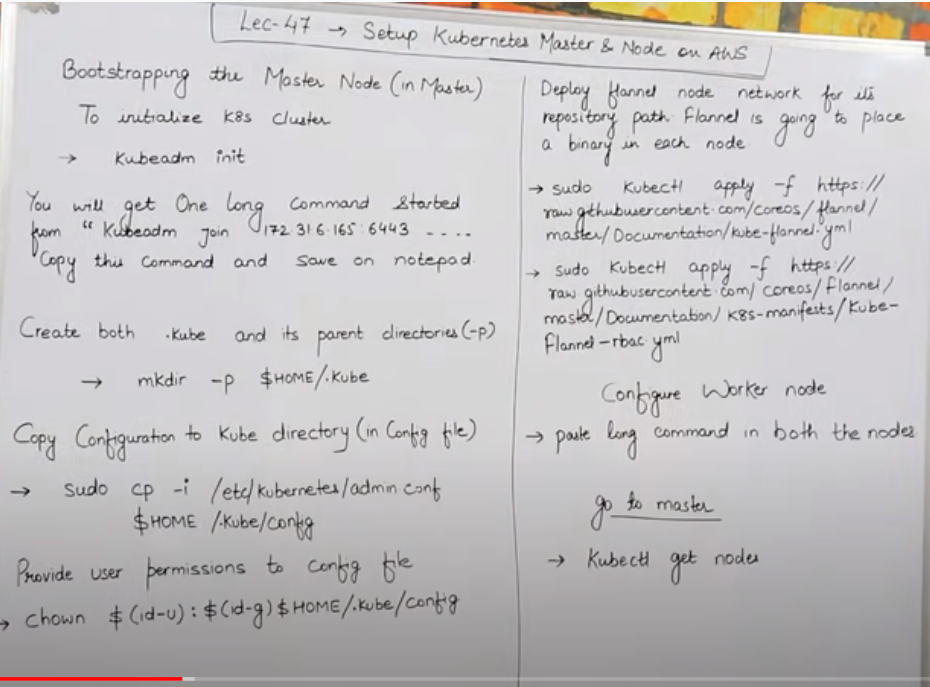 Lec-47 → Setup Kubernetes Master & Node on AWS
Bootstrapping the Master Node (in Master)
To initialize K8s cluster
→ Kubeadm init
You will get One long Command started
from "Kubeadm join 172.31.6.165:6443 ....
Copy this command and save on notepad.
Create both .Kube and its parent directories (-p)
→ mkdir -p $HOME/.Kube
Copy Configuration to Kube directory (in Config file)
→ sudo cp -i /etc/kubernetes/admin.conf
$HOME /.Kube/config
Provide user permissions to config file
→ chown $(id-u):$(id-g) $HOME/.Kube/config
Deploy flannel node network for its
repository path. Flannel is going to place
a binary in each node.
→ sudo Kubectl apply -f https://
raw.githubusercontent.com/coreos/flannel/
master/Documentation/kube-flannel.yml
→ sudo Kubectl apply -f https://
raw.githubusercontent.com/coreos/flannel/
master/Documentation/K8s-manifests/Kube-
Flannel-rbac.yml
Configure Worker node
→ paste long command in both the nodes
go to master
→ Kubectl get nodes